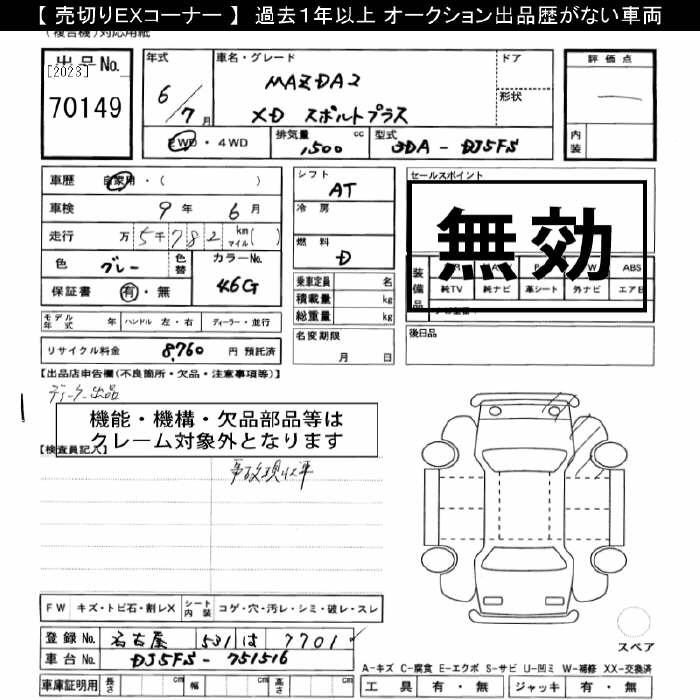 【 売切りEXコーナー 】 過去１年以上 オークション出品歴がない車両
(複合機)対応用紙
出品No.
[2023]
70149
年式
6/7月
車名・グレード
MAZDA2
XD スポルトプラス
ドア
形状
評価点
内装
2WD・4WD
排気量 1,500 cc
型式 3DA - DJ5FS
車歴 自家用・( )
車検 9年 6月
走行 万5千782 km マイル( )
色 グレー 色替
カラーNo. 46G
保証書 有・無
シフト
AT
冷房
燃料
D
乗車定員 名
積載量 kg
総重量 kg
セールスポイント
無効
装備品
ABS
純TV 純ナビ 革シート 外ナビ エアB
モデル年式 年 ハンドル 左・右 ディーラー・並行
リサイクル料金 8,760 円 預託済
名変期限
月 日
後日品
【出品店申告欄(不良箇所・欠品・注意事項等)】
ディーラー出品
機能・機構・欠品部品等は
クレーム対象外となります
【検査員記入】
事故現状車
FW キズ・トビ石・割レX シート内装 コゲ・穴・汚レ・シミ・破レ・スレ
登録No. 名古屋 531 は 7701
車台No. DJ5FS - 751516
スペア
A-キズ C-腐食 E-エクボ S-サビ U-凹ミ W-補修 XX-交換済
車庫証明用 長さ cm 幅 cm 高さ cm
工具 有・無 ジャッキ 有・無